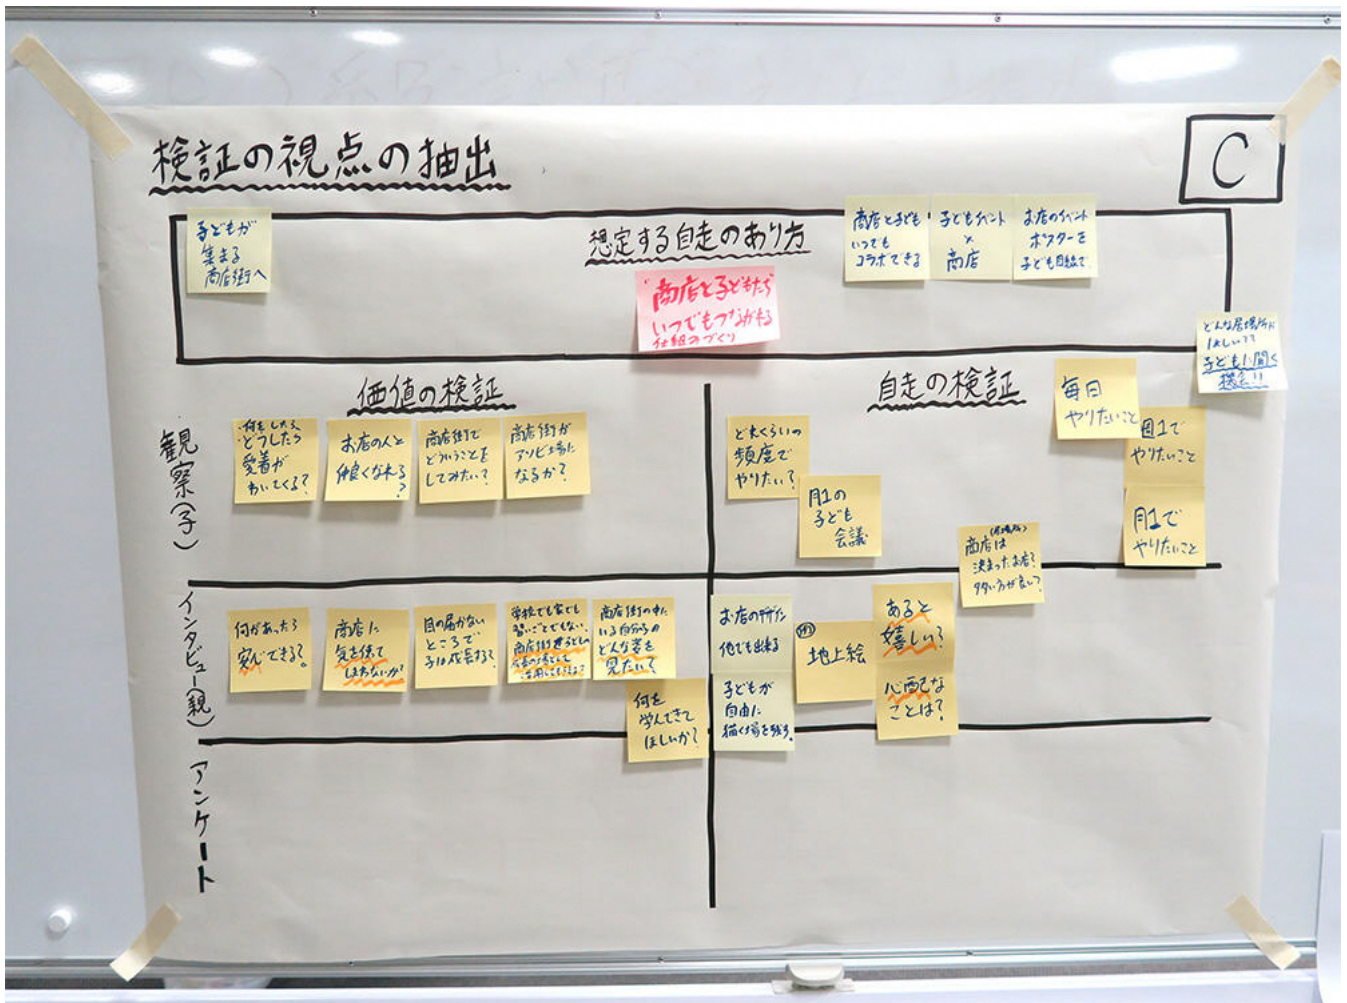 検証の視点の抽出
C
子どもが
集まる
商店街へ
想定する自走のあり方
"商店と子どもたち
いつでもつながれる
仕組みづくり
商店と子ども
いつでも
コラボできる
子どもイベント
×
商店
お店のイベント
ポスターを
子ども目線で
どんな居場所が
ほしい??
子どもに聞く
機会!!
価値の検証
自走の検証
観察(子)
何をしたら、
どうしたら
愛着が
わいてくる?
お店の人と
仲良くなれる
?
商店街で
どういうことを
してみたい?
商店街が
アソビ場に
なるか?
どれくらいの
頻度で
やりたい?
月1の
子ども
会議
毎日
やりたいこと
週1で
やりたいこと
月1で
やりたいこと
商店は
決まったお店?
多い方が良い?
インタビュー(親)
何があったら
安心できる?
商店に
気を使って
しまわないか?
目の届かない
ところで
子は成長する?
学校でも家でも
習いごとでもない、
商店街
商店街の中に
いる自分の子の
どんな姿を
見たい?
何を
学んできて
ほしいか?
お店のデザイン
他でも出来る
子どもが
自由に
描く場を残す。
地上絵
あると
嬉しい?
心配な
ことは?
アンケート